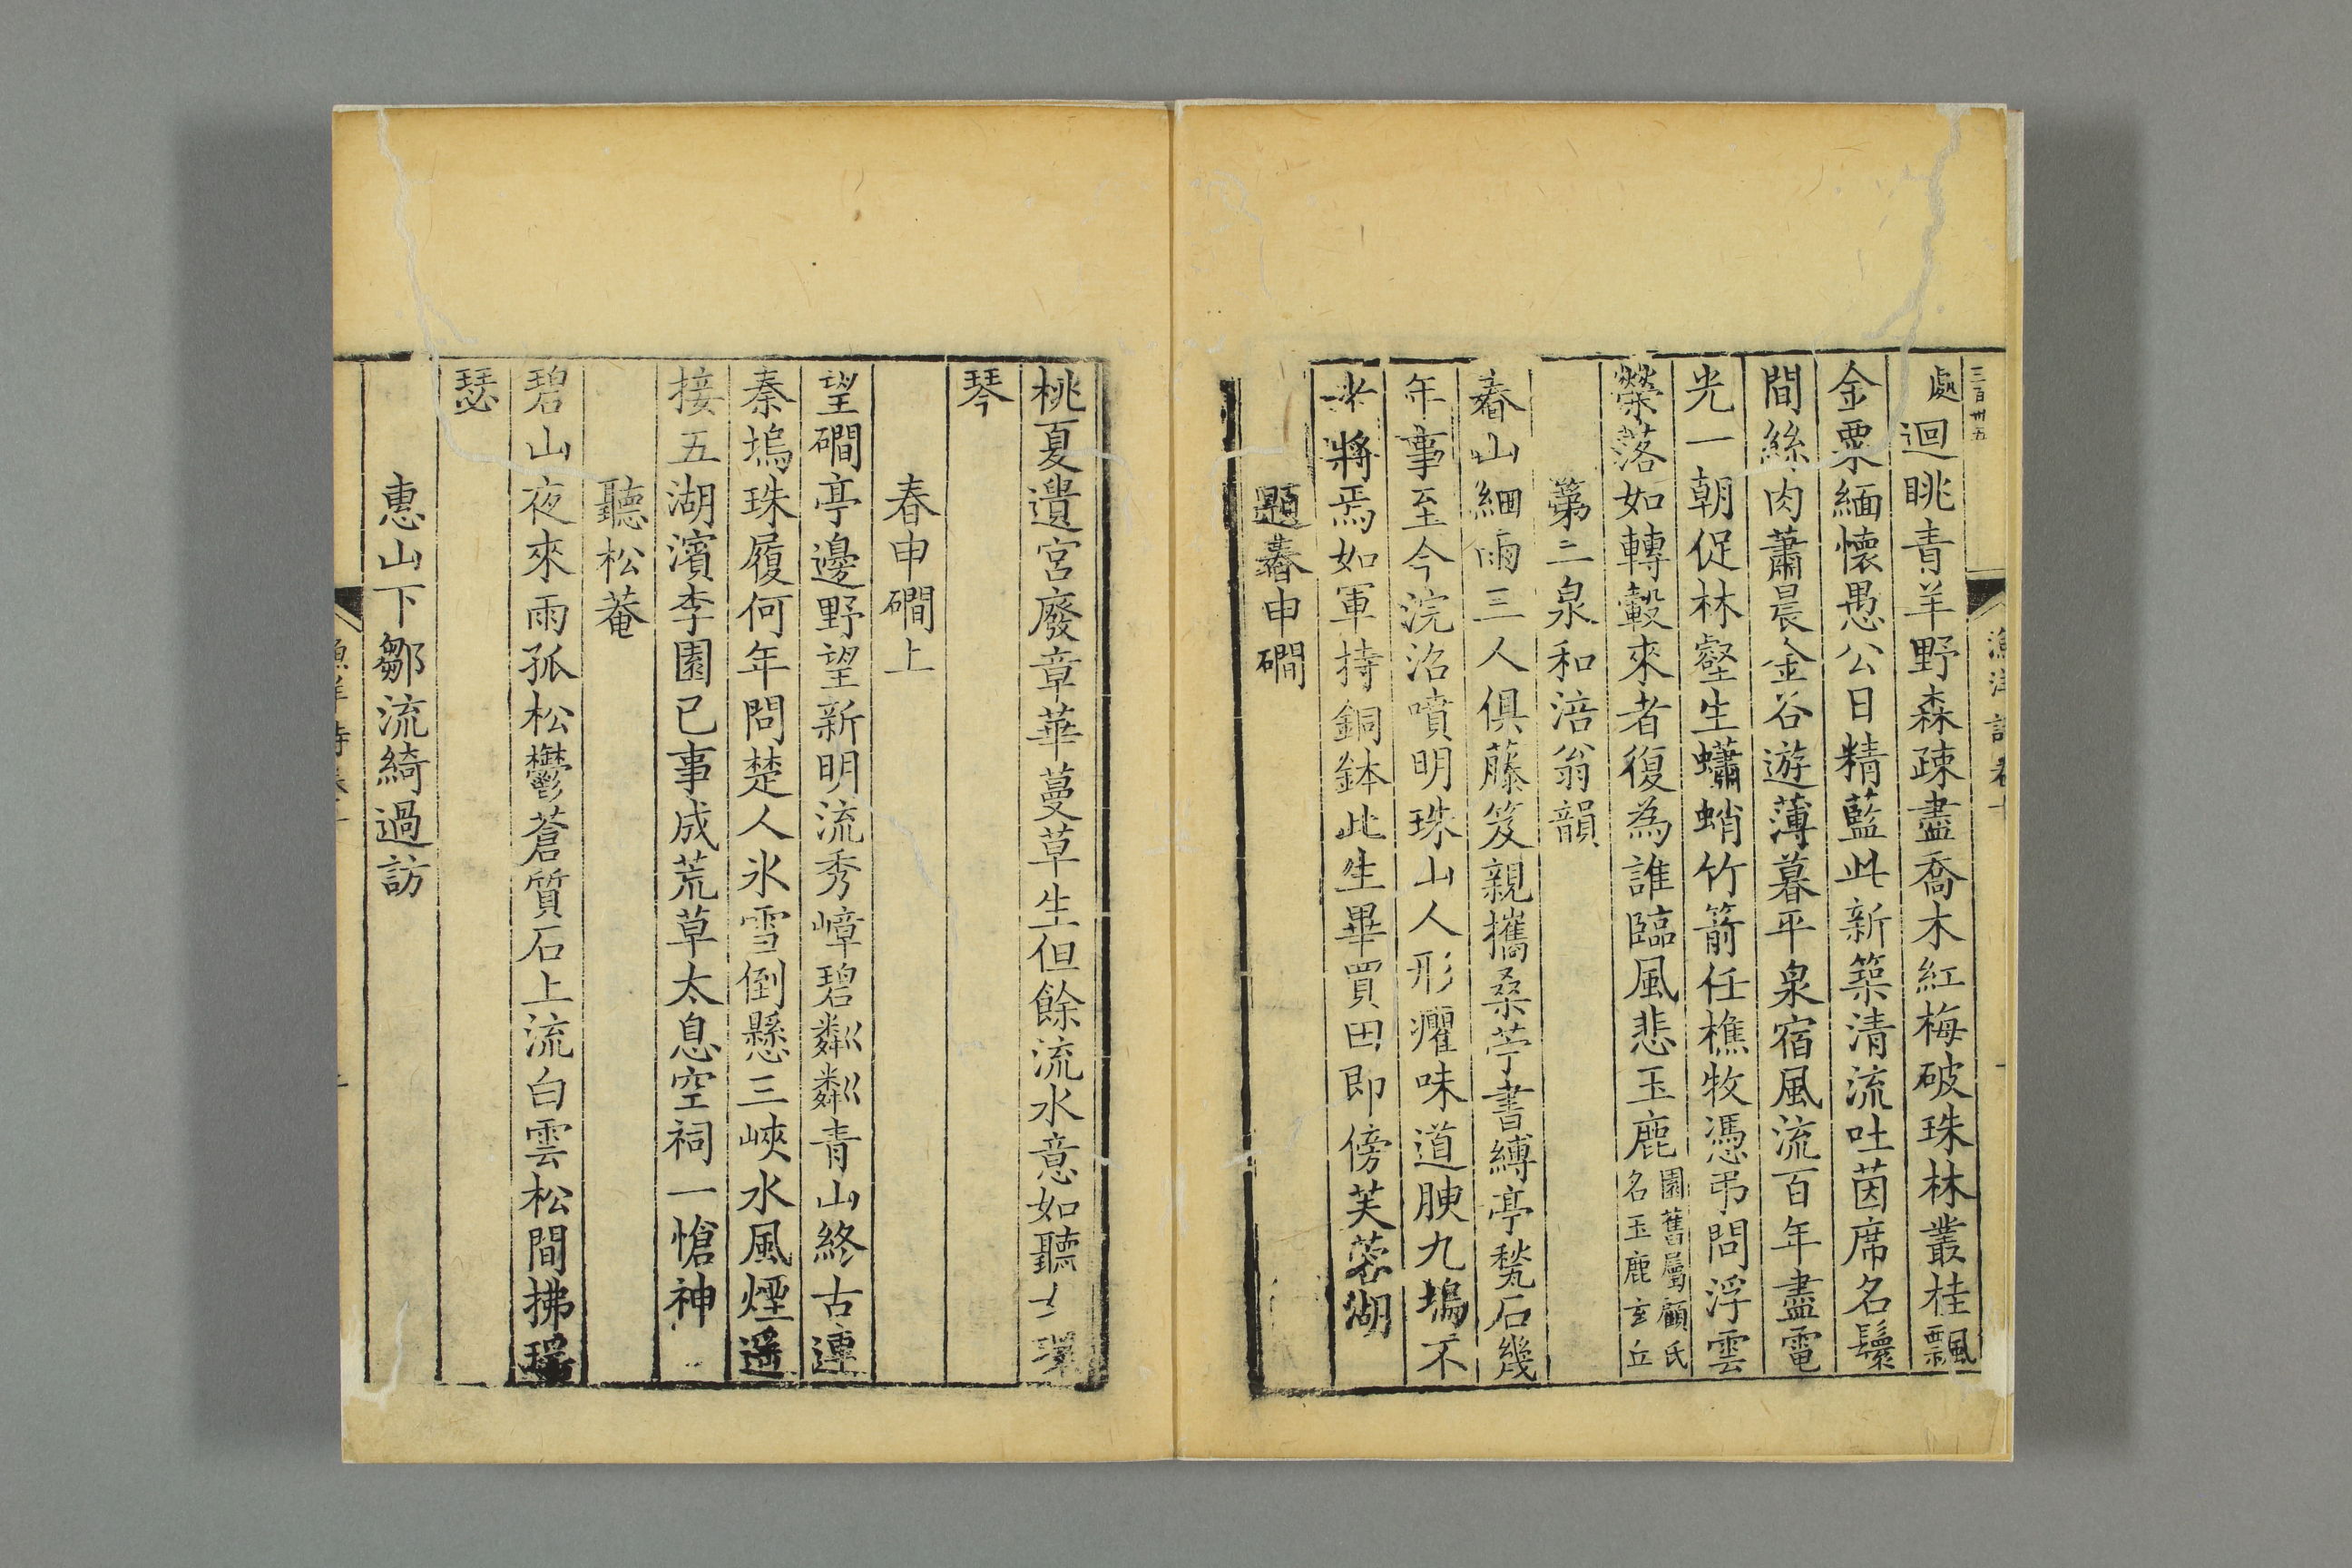 三百卅五
處迴眺青羊野森疎盡喬木紅梅破珠林叢桂飄
金粟緬懷愚公日精藍此新築清流吐茵席名鬟
間絲肉蕭晨金谷遊薄暮平泉宿風流百年盡電
光一朝促林壑生蠨蛸竹箭任樵牧憑弔問浮雲
榮落如轉轂來者復為誰臨風悲玉鹿園舊屬顧氏
名玉鹿玄丘
第二泉和涪翁韻
春山細雨三人俱藤笈親攜桑苧書縛亭甃石幾
年事至今浣沼噴明珠山人形癯味道腴九塢不
將焉如軍持銅鉢此生畢買田即傍芙蓉湖
題春申磵
桃夏遺宮廢章華蔓草生但餘流水意如聽
琴
春申磵上
望磵亭邊野望新明流秀嶂碧粼粼青山終古連
秦塢珠履何年問楚人氷雪倒懸三峽水風煙遥
接五湖濱李園已事成荒草太息空祠一愴神
聽松菴
碧山夜來雨孤松鬱蒼質石上流白雲松間拂瑶
瑟
惠山下鄒流綺過訪